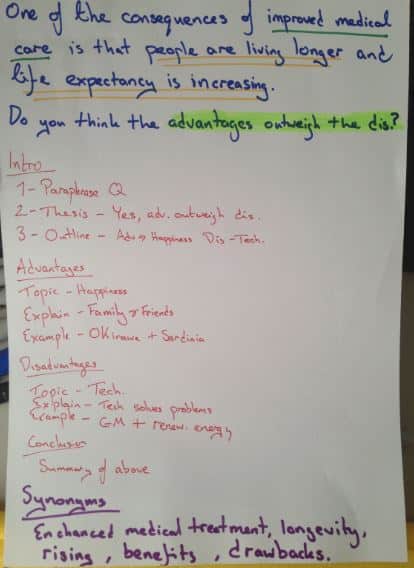 One of the consequences of improved medical
care is that people are living longer and
life expectancy is increasing.
Do you think the advantages outweigh the dis.?
Intro
1- Paraphrase Q
2- Thesis - Yes, adv. outweigh dis.
3 - Outline - Adv → Happiness Dis - Tech.
Advantages
Topic - Happiness
Explain - Family & Friends
Example - Okinawa + Sardinia
Disadvantages
Topic - Tech.
Explain - Tech solves problems
Example - GM + renew. energy
Conclusion
Summary of above
Synonyms
Enchanced medical treatment, longevity,
rising, benefits, drawbacks.